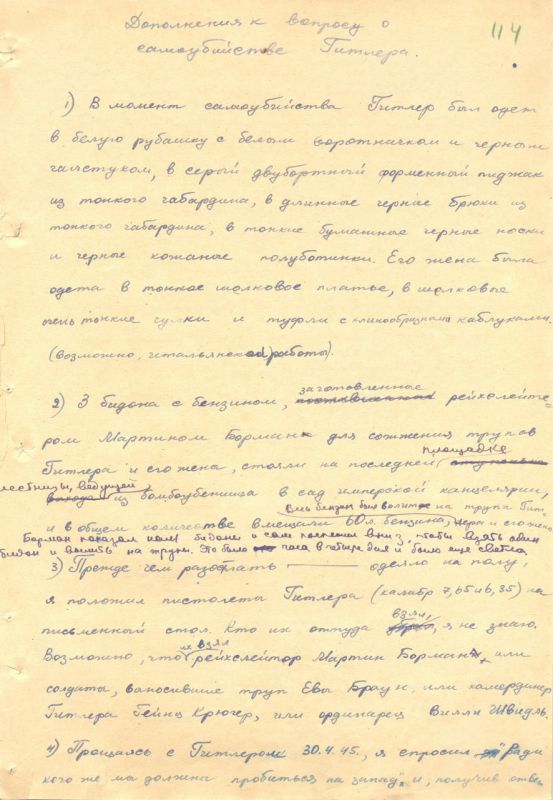 114
Дополнения к вопросу о
самоубийстве Гитлера.
1) В момент самоубийства Гитлер был одет
в белую рубашку с белым воротничком и черным
галстуком, в серый двубортный форменный пиджак
из тонкого габардина, в длинные черные брюки из
тонкого габардина, в тонкие бумажные черные носки
и черные кожаные полуботинки. Его жена была
одета в тонкое шелковое платье, в шелковые
очень тонкие чулки и туфли с клинообразными каблуками
(возможно, итальянской работы).
заготовленные
2) 3 бидона с бензином, рейхслейте-
ром Мартином Борман для сожжения трупов
площадке
Гитлера и его жена, стояли на последней
лестницы, ведущей
из бомбоубежища в сад имперской канцелярии,
Весь бензин был вылит на трупа Гит-
и в общем количестве вмещали 60 л. бензина, лера и его жены
Борман показал мне бидоны и сам поспешил вниз, чтобы взять свой
бидон и вылить на трупы. Это было часа в четыре дня и было еще светло
3) Прежде чем разостлать одеяло на полу,
я положил пистолеты Гитлера (калибр 7,65 и 6,35) на
взял,
письменный стол. Кто их оттуда я не знаю.
их взял
Возможно, что рейхслейтор Мартин Борман, или
солдаты, выносившие труп Евы Браун, или камердинер
Гитлера Гейнц Крюгер, или ординарец Вилли Швидль.
4) Прощаясь с Гитлером 30.4.45., я спросил "Ради
кого же мы должны пробиться на запад" и, получив отве-